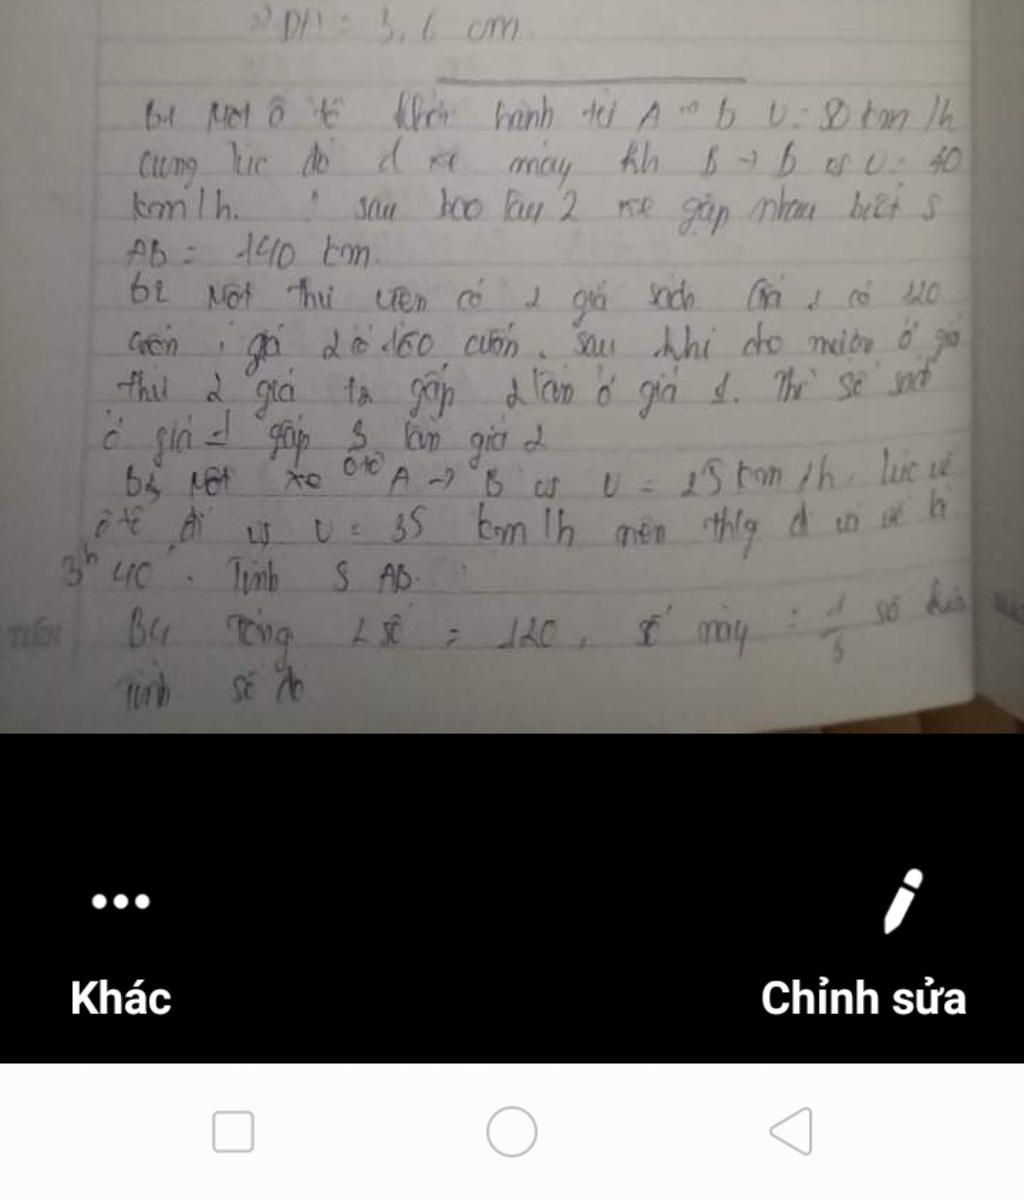 = 3,6 cm
B1 Một ô tô khởi hành từ A → b v = km/h
cùng lúc đó 1 xe máy kh B → B v = 40
km/h. sau bao lâu 2 xe gặp nhau biết S
AB = 140 km.
b2 Một thư viện có 2 giá sách Giá 1 có 120
cuốn, giá 2 có 160 cuốn. Sau khi cho mượn ở giá
thứ 2 giá ta gấp 2 lần ở giá 1. Thì số sách
ở giá 1 gấp 3 lần giá 2
B3 Một xe ôtô A → B v = 25 km/h. lúc về
ô tô đi v = 35 km/h nên th/g đ và về là
3h 40'. Tính S AB.
B4 Tổng 2 số = 120, số này = 1/3 số kia
Tính số đó
Khác
Chỉnh sửa